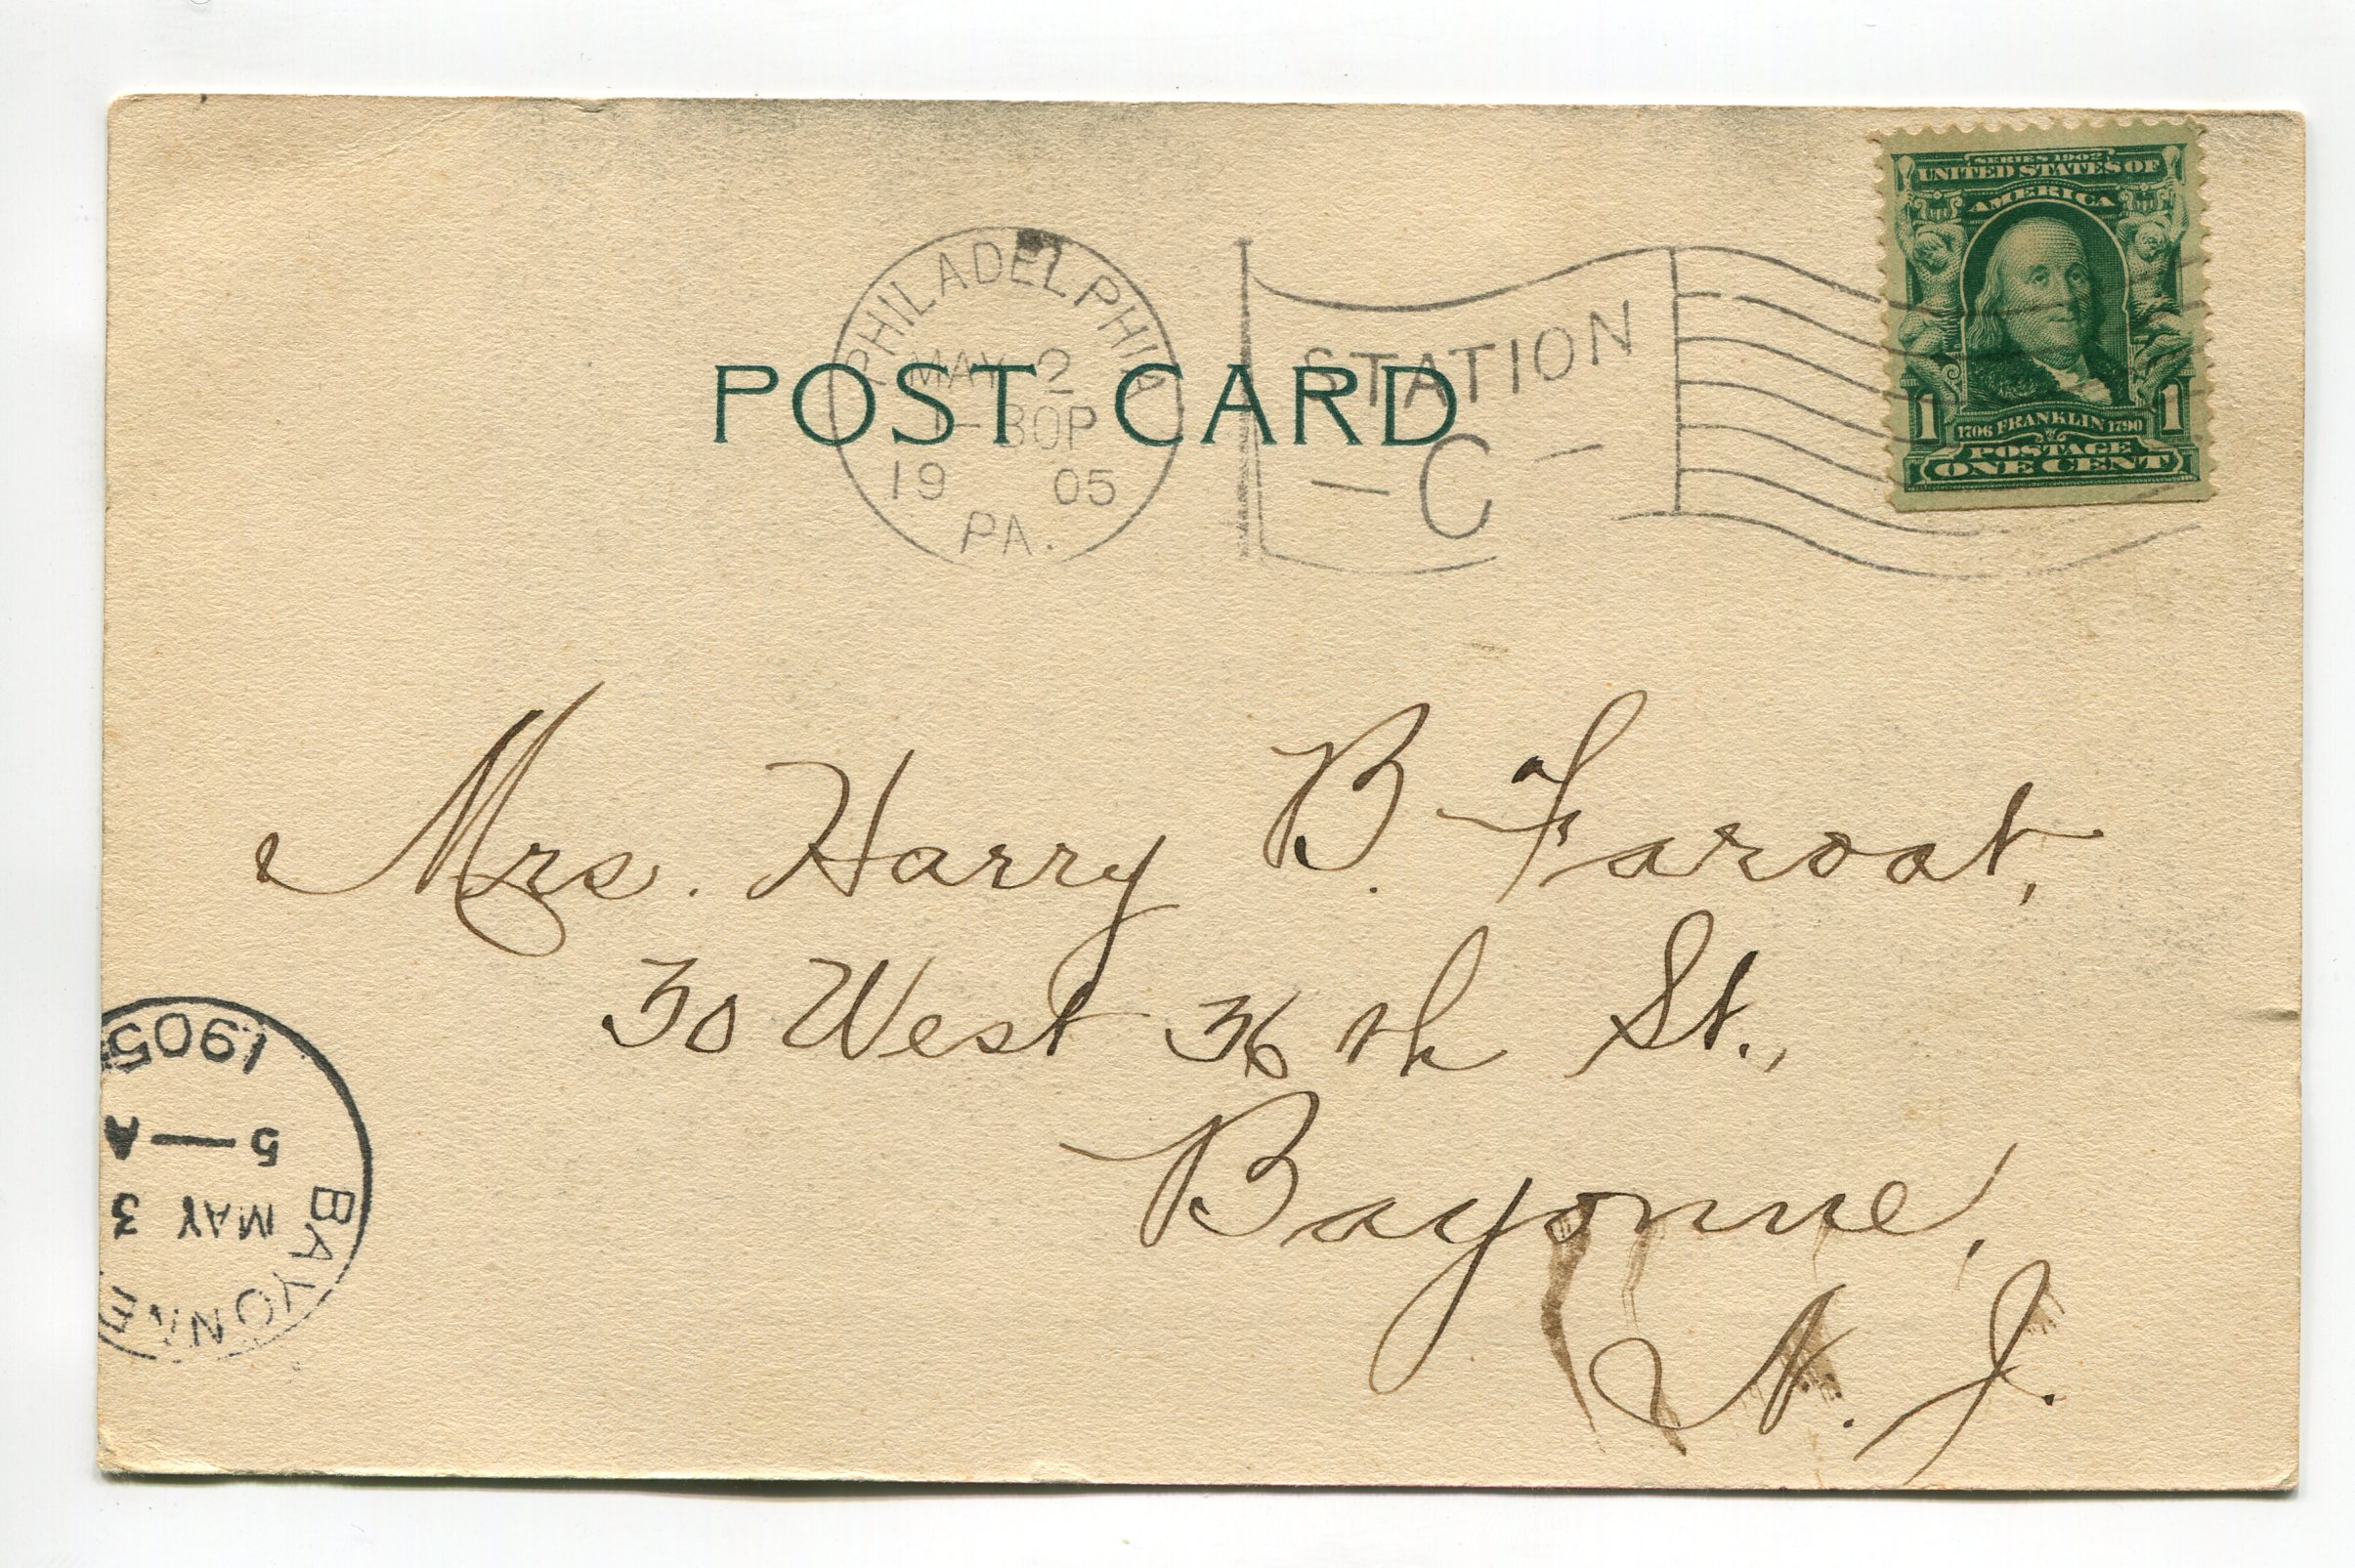 SERIES 1902
UNITED STATES OF
AMERICA
1 1
1706 FRANKLIN 1790
POSTAGE
ONE CENT
PHILADELPHIA
MAY 2
1-30P
19 05
PA.
STATION
- C -
POST CARD
Mrs. Harry B. Faroat,
30 West 36th St.,
Bayonne,
N. J.
BAYONNE
MAY 3
5 - A
1905